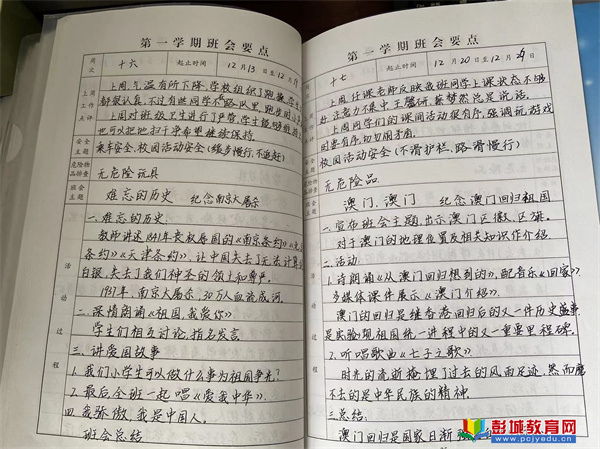 第一学期班会要点
周次 十六 起止时间 12月13日至12月19
上周工作点评 上周,气温有所下降,学校组织了跑操,学生
都很认真,不过有些同学不跟队里,跑步
上周对班级卫生进行了严管,学生能够
也可以把地扫干净希望继续保持
安全主题 乘车安全,校园活动安全(缓步慢行,不追赶)
危险物品排查 无危险玩具
班会主题 难忘的历史 纪念南京大屠杀
活动过程
一.难忘的历史
教师讲述1841年丧权辱国的《南京条约》
条约》《天津条约》,让中国失去了无法计算
白银,失去了我们神圣的领土和尊严。
1937年,南京大屠杀,30万人血流成河。
二.深情朗诵《祖国,我爱你》
学生们相互讨论,指名发言.
三.讲爱国故事
1.我们小学生可以做什么事为祖国争光?
2.最后全班一起唱《爱我中华》
四.我骄傲,我是中国人。
班会总结
第一学期班会要点
周次 十七 起止时间 12月20日至12月26日
上周工作点评 上周任课老师反映我班同学上课状态不够
好,注意力不集中王馨研,蔡梦然总是说话,
上周同学们的课间活动很有序,强调玩游戏
时要有序,切勿闹矛盾.
安全主题 校园活动安全(不滑护栏,路滑慢行)
危险物品排查 无危险品.
班会主题 澳门,澳门 纪念澳门回归祖国
活动过程
一.宣布班会主题,出示澳门区徽、区旗.
对于澳门的地理位置及相关知识作介绍.
二.活动
1.诗朗诵《从澳门回归想到的》,配音乐《回家》
多媒体课件展示《澳门介绍》.
澳门的回归是继香港回归后的又一件历史盛事
是实现祖国统一进程中的又一重要里程碑.
2.听唱歌曲《七子之歌》
时光的流逝掩埋了过去的风雨足迹,然而磨
不去的是中华民族的精神.
三.总结:
澳门回归是国家日渐
彭城教育网
www.pcjyedu.cn